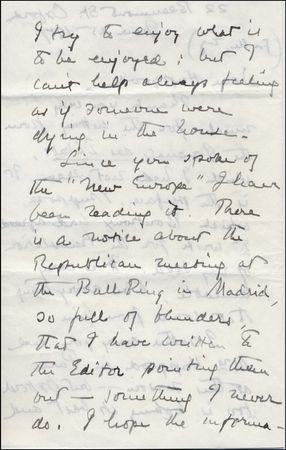 I try to enjoy what is
to be enjoyed; but I
can't help always feeling
as if someone were
dying in the house.
Since you spoke of
the "New Europe" I have
been reading it. There
is a notice about the
Republican meeting at
the Bull Ring in Madrid,
so full of blunders,
that I have written to
the Editor pointing them
out — something I never
do. I hope the informa-